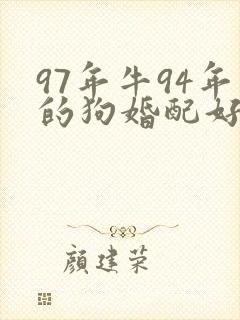 97年牛94年
的狗婚配好
颜建荣